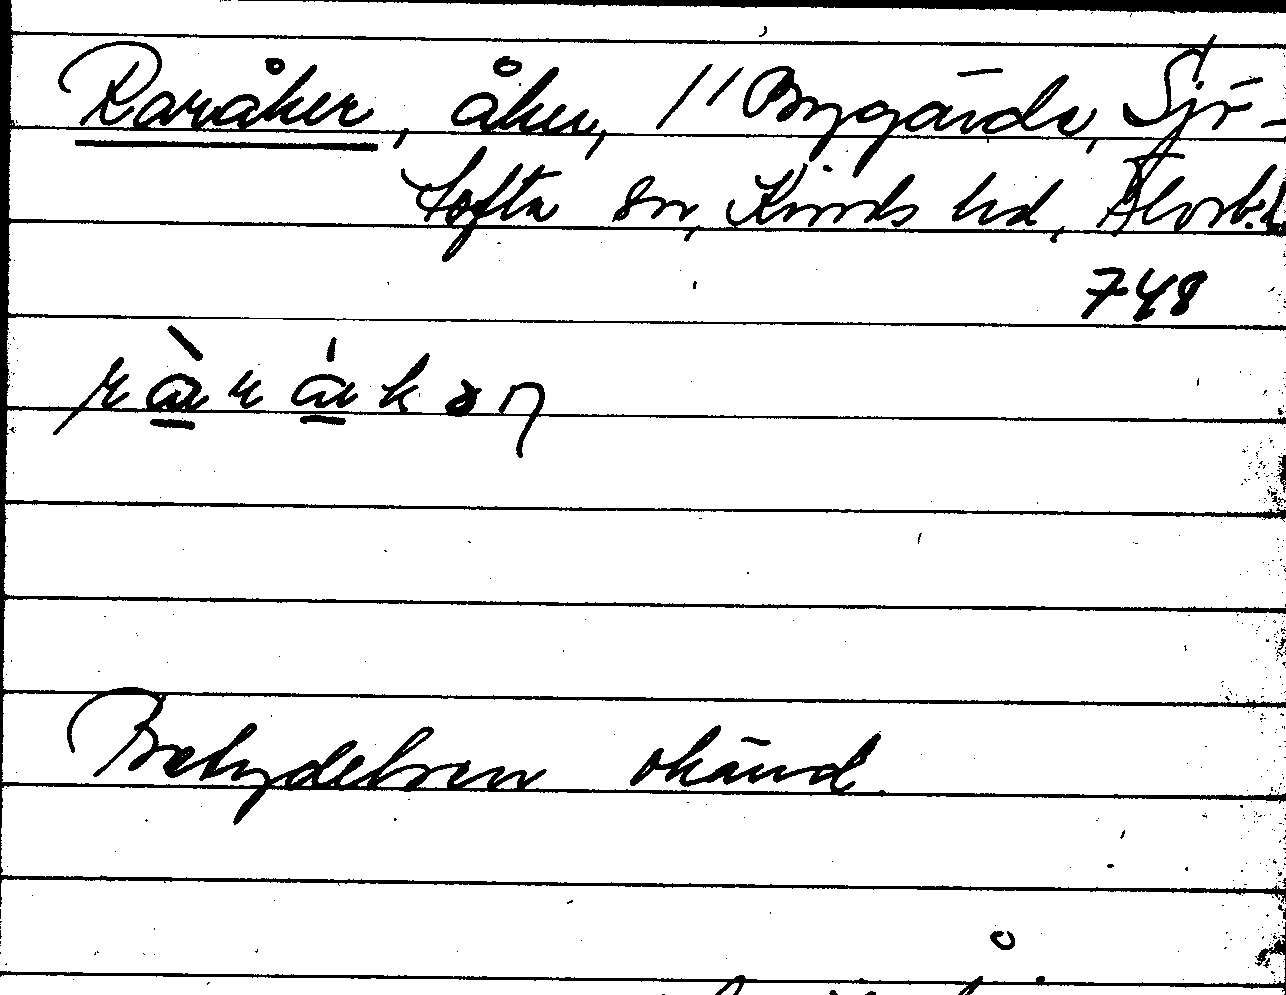 Raråker, åker, // Bygärde, Sjö-
tofta sn, Kinds hd, Älvsb.l
748
Betydelsen okänd.